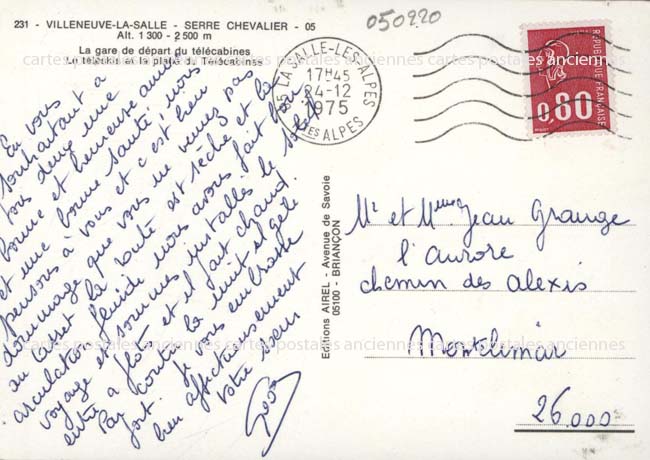 231 - VILLENEUVE-LA-SALLE - SERRE CHEVALIER - 05
Alt. 1 300 - 2 500 m
La gare de départ du télécabines
Le téléski et la piste du Télécabines
050220
05 LA SALLE-LES-ALPES
17H45
24-12
1975
HTES ALPES
REPUBLIQUE FRANÇAISE
0,80
cartes postales anciennes
En vous
souhaitant à
tous deux une
bonne et heureuse année
et une bonne santé, nous
pensons à vous et c'est bien
dommage que vous ne veniez pas
au Lasser la route est sèche et la
circulation fluide nous avons fait bon
voyage et sommes installés le soleil
entre à flots et il fait chaud.
Par contre la nuit il gèle
fort. Je vous embrasse
bien affectueusement
votre sœur
Editions AIREL - Avenue de Savoie
05100 - BRIANÇON
Mr et Mme Jean Grange
l'aurore
chemin des alexis
Montélimar
26.000